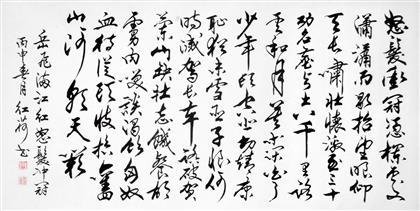 怒髮衝冠憑欄處
瀟瀟雨歇抬望眼仰
天長嘯壯懷激烈三十
功名塵與土八千里路
雲和月莫等閑白了
少年頭空悲切靖康
恥猶未雪臣子恨何
時滅駕長車踏破賀
蘭山缺壯志饑餐胡
虜肉笑談渴飲匈奴
血待從頭收拾舊
山河朝天闕
岳飛滿江紅怒髮沖冠
丙申春月紅荷書